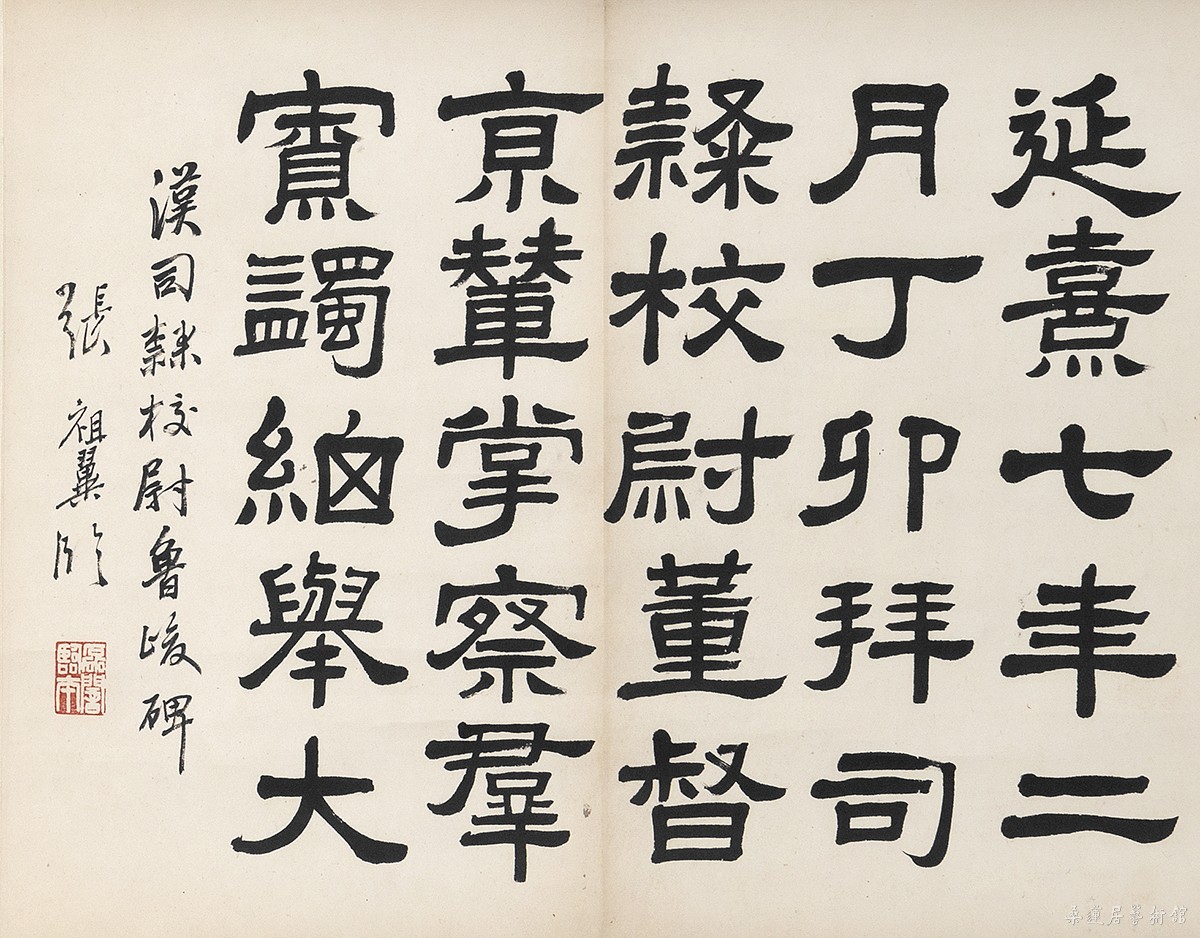 延熹七年二
月丁卯拜司
隷校尉董督
亰輦掌察羣
寮蠲細舉大
漢司隸校尉魯峻碑
張祖翼臨
桑蓮居藝術館